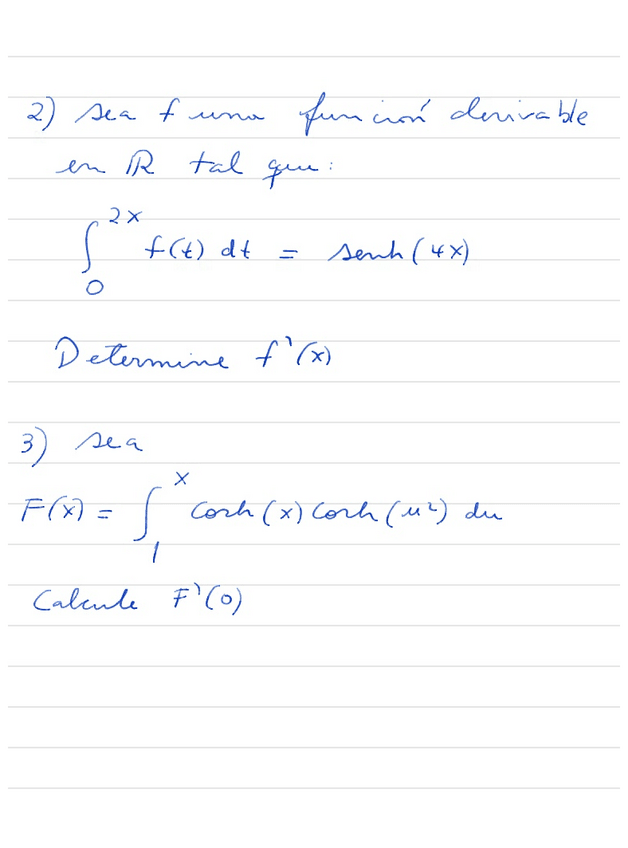 2) sea f una función derivable
en ℝ tal que:
∫₀^{2x} f(t) dt = senh(4x)
Determine f'(x)
3) sea
F(x) = ∫₁^{x} Cosh(x) Cosh(u²) du
Calcule F'(0)